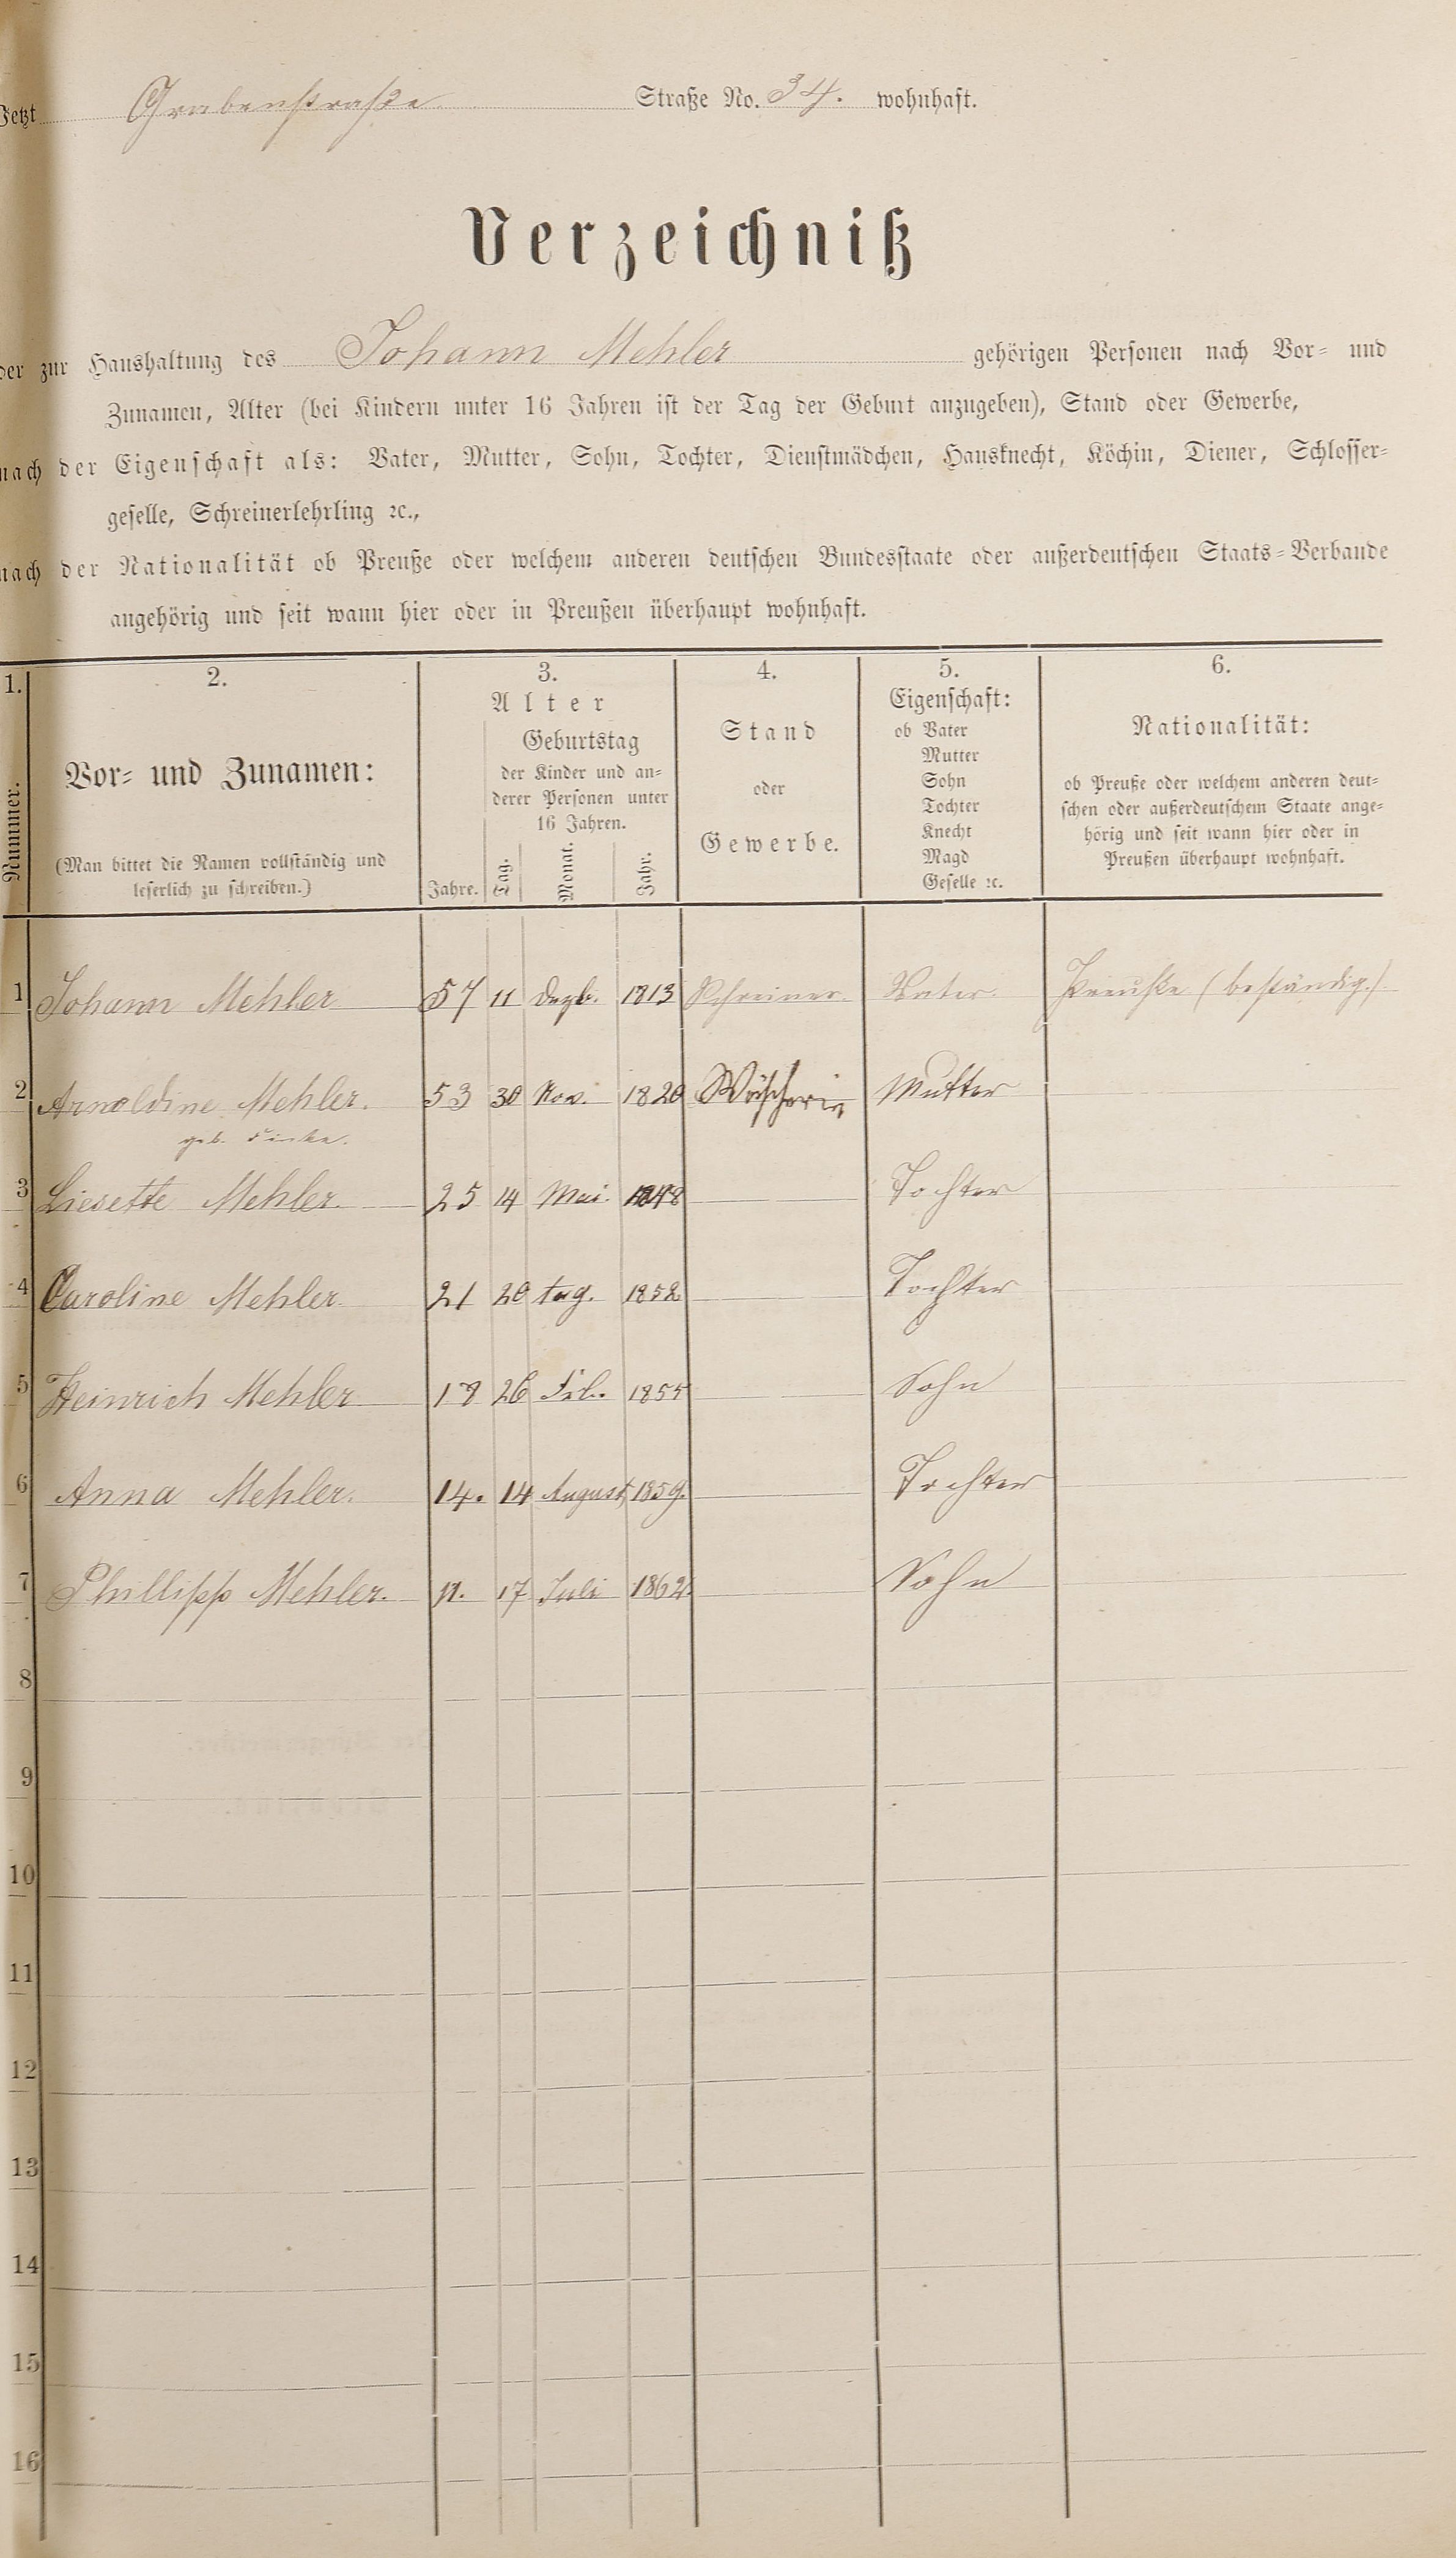 Jetzt Grabenstraße Straße No. 34. wohnhaft.
Verzeichniß
der zur Haushaltung des Johann Mehler gehörigen Personen nach Vor- und
Zunamen, Alter (bei Kindern unter 16 Jahren ist der Tag der Geburt anzugeben), Stand oder Gewerbe,
nach der Eigenschaft als: Vater, Mutter, Sohn, Tochter, Dienstmädchen, Hausknecht, Köchin, Diener, Schlosser-
geselle, Schreinerlehrling ꝛc.,
nach der Nationalität ob Preuße oder welchem anderen deutschen Bundesstaate oder außerdeutschen Staats-Verbande
angehörig und seit wann hier oder in Preußen überhaupt wohnhaft.
1.
Nummer.
2.
Vor- und Zunamen:
(Man bittet die Namen vollständig und
leserlich zu schreiben.)
3.
Alter
Geburtstag
der Kinder und an-
derer Personen unter
16 Jahren.
Jahre. Tag. Monat. Jahr.
4.
Stand
oder
Gewerbe.
5.
Eigenschaft:
ob Vater
Mutter
Sohn
Tochter
Knecht
Magd
Geselle ꝛc.
6.
Nationalität:
ob Preuße oder welchem anderen deut-
schen oder außerdeutschem Staate ange-
hörig und seit wann hier oder in
Preußen überhaupt wohnhaft.
1 Johann Mehler 57 11 Dezb. 1813 Schreiner. Vater. Preuße (beständig.)
2 Arnoldine Mehler. 53 30 Nov. 1820 Wäscherin Mutter
geb.
3 Liesette Mehler. 25 14 Mai. 1848 Tochter
4 Caroline Mehler. 21 20 1852 Tochter
5 Heinrich Mehler 18 26 Feb. 1855 Sohn
6 Anna Mehler. 14. 14 August 1859. Tochter
7 Phillipp Mehler. 11. 17 Juli 1862. Sohn
8
9
10
11
12
13
14
15
16